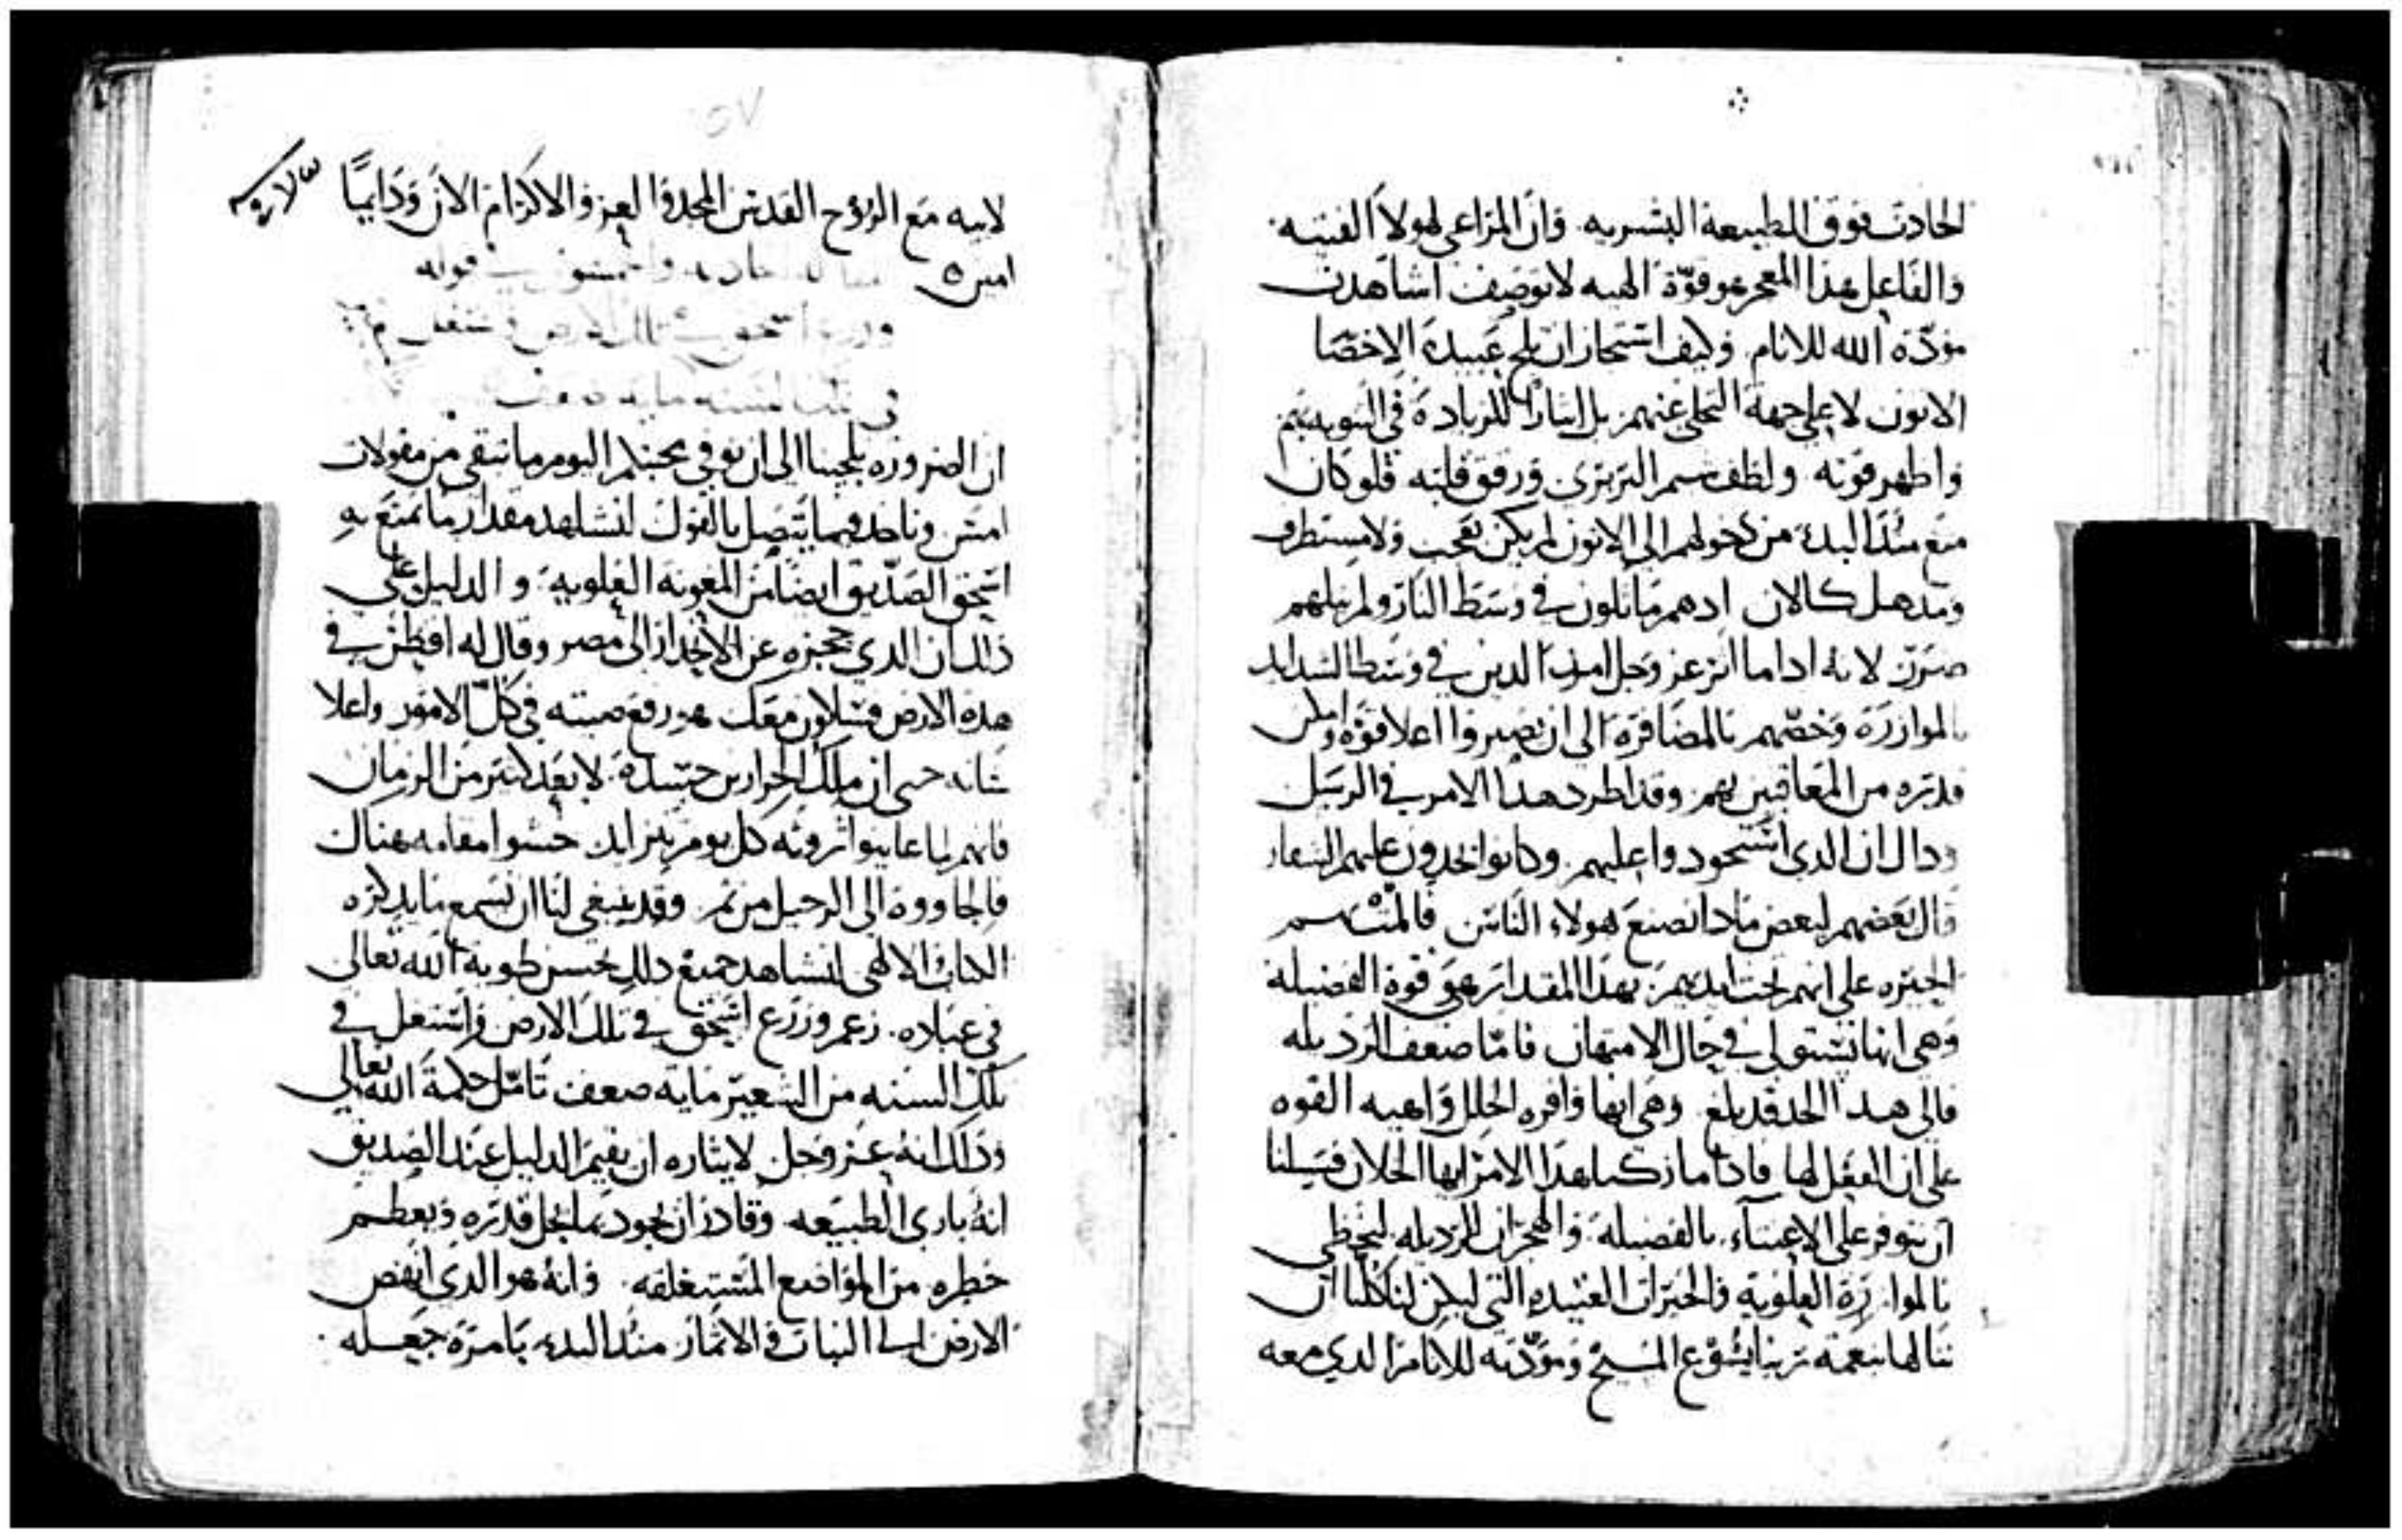 الحادث فوق الطبيعة البشريه. وان المراعي لهولا الفتيه.
والفاعل هذا المعجز هو قوّة الهيه لا توصف اشاهدت
مودّة الله للانام. وكيف استجاز ان يلج عبيده الاخصا
الاتون لا على جهة التخلي عنهم بل ايثارا للزيادة في التنويه بهم
واظهر قوته. ولطف سم البربري ورقق قلبه فلو كان
منع منذ البدء من دخولهم الى الاتون لم يكن بعجب ولا مستطرف
ومدهل كالان ادهم ماثلون في وسط النار ولم ينلهم
ضرر. لانه اداما اثر عز وجل امد الدين في وسط الشدايد
بالموازرة وخصّهم بالمضافرة الى ان يصيروا اعلا قوه وامكن
قدره من المعاقبين لهم. وقد اطرد هدا الامر في الرسل
ودال ان الدي استحودوا عليهم. وكانوا يحدون عليهم الشفار
قال بعضهم لبعض مادا نصنع هولاء الناس فالمتسم
الحيره على انهم تحت ايديهم. بهدا المقدار هي قوة الفضيله
وهي انها تستولي في حال الامتهان فامّا ضعف الرديله
فالى هدا الحد قد بلغ وهي ابها وافره الخلل واهيه القوه
على ان الفعل لها فادا ما زكنا هدا الامر ايها الخلان فسبيلنا
ان نتوفر على الاعتناء بالفضيله والهجران للرديله لنحظى
بالموازرة العلوية والخيرات العتيده التي ليكن لنا كلنا ان
ننالها بنعمة ربنا يشوع المسيح ومودّته للانام الدي معه
٥٧
لابيه مع الروح القدس المجد والعز والاكرام الان ودايمًا
امين
قوله
وزرع اسحق في تلك الارض واشتغل
في تلك السنه مايه ضعف
ان الضروره تلجينا الى ان نوفي محبتكم اليوم ما تبقى من مقولات
امس وناخد فيما يتصل بالقول لنشاهد مقدار ما تمتع به
اسحق الصدّيق ايضًا من المعونة العلويه. والدليل على
دلك ان الدي حجزه عن الانحدار الى مصر وقال له اقطن في
هده الارض فساكون معك هو رفع صيته في كل الامور واعلا
شانه حتى ان ملك الجرارين حسده. لا بعد كثير من الزمان
فانهم لما عاينوا ثروته كل يوم تتزايد حسوا مقامه هناك
فالجاووه الى الرحيل من ثم. وقد ينبغي لنا ان نسمع ما يدكره
الكتاب الالهي لنشاهد جميع دلك حسن طوية الله تعالى
في عباده. زعم وزرع اسحق في تلك الارض واشتغل في
تلك السنه من الشعير مايه ضعف تامّل حكمة الله تعالى
ودلك انه عز وجل لايثاره ان يقيم الدليل عند الصديق
انه باري الطبيعه وقادر ان يجود بما يجل قدره ويعظم
خطره من المواضع المستغلقه. وانه هو الدي انهض
الارض الى النبات والاثمار منذ البدء بامره جعله